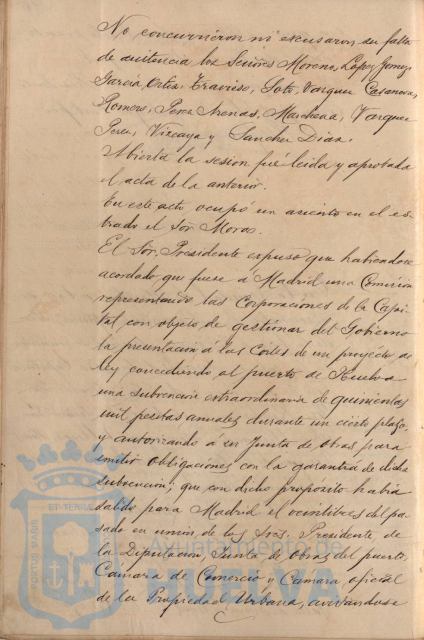 No concurrieron ni excusaron su falta
de asistencia los Señores Moreno, López Gomez,
García, Ortiz, Travieso, Soto, Vazquez Casanova,
Romero, Perez Arenas, Marchena, Vazquez
Perez, Vizcaya y Sanchez Dias.
Abierta la sesion fué leida y aprobada
el acta de la anterior.
En este acto ocupó un asiento en el es-
trado el Sor. Moras.
El Sor. Presidente expuso que habiendose
acordado que fuese á Madrid una Comision
representando las Corporaciones de la Capi-
tal con objeto de gestionar del Gobierno
la presentacion á las Cortes de un proyecto de
ley concediendo al puerto de Huelva
una subvencion extraordinaria de quinientas
mil pesetas anuales durante un cierto plazo,
y autorizando á su Junta de Obras para
emitir obligaciones con la garantia de dicha
subvencion; que con dicho propósito habia
salido para Madrid el veintitres del pa-
sado en union de los Sres. Presidente de
la Diputacion, Junta de Obras del puerto,
Cámara de Comercio y Cámara oficial
de la Propiedad Urbana, avisandose
PORTUS MARIS
ET TERRAE
Ayuntamiento de
HUELVA